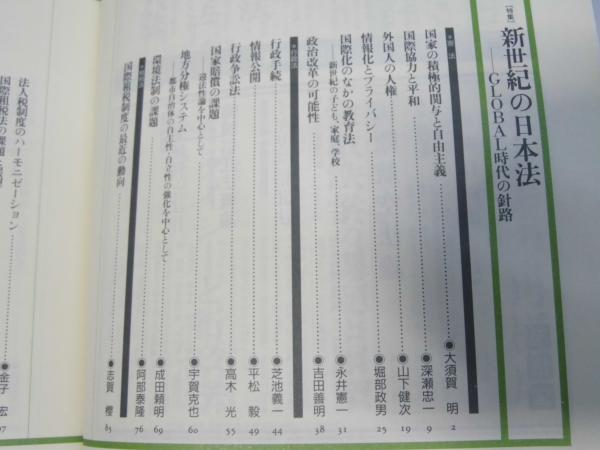 [特集]
新世紀の日本法
──GLOBAL時代の針路
●憲法
国家の積極的関与と自由主義……●大須賀 明 2
国際協力と平和……●深瀬忠一 9
外国人の人権……●山下健次 19
情報化とプライバシー……●堀部政男 25
国際化のなかの教育法……●永井憲一 31
──新世紀の子ども、家庭、学校
政治改革の可能性……●吉田善明 38
●行政法
行政手続……●芝池義一 44
情報公開……●平松 毅 49
行政争訟法……●高木 光 55
国家賠償の課題……●宇賀克也 60
──違法性論を中心として
地方分権システム……●成田頼明 69
──都市自治体の自主性・自立性の強化を中心として
環境法制の課題……●阿部泰隆 76
国際租税制度の最近の動向……●志賀 櫻 85
法人税制度のハーモニゼーション……●金子 宏
国際租税法の課題と